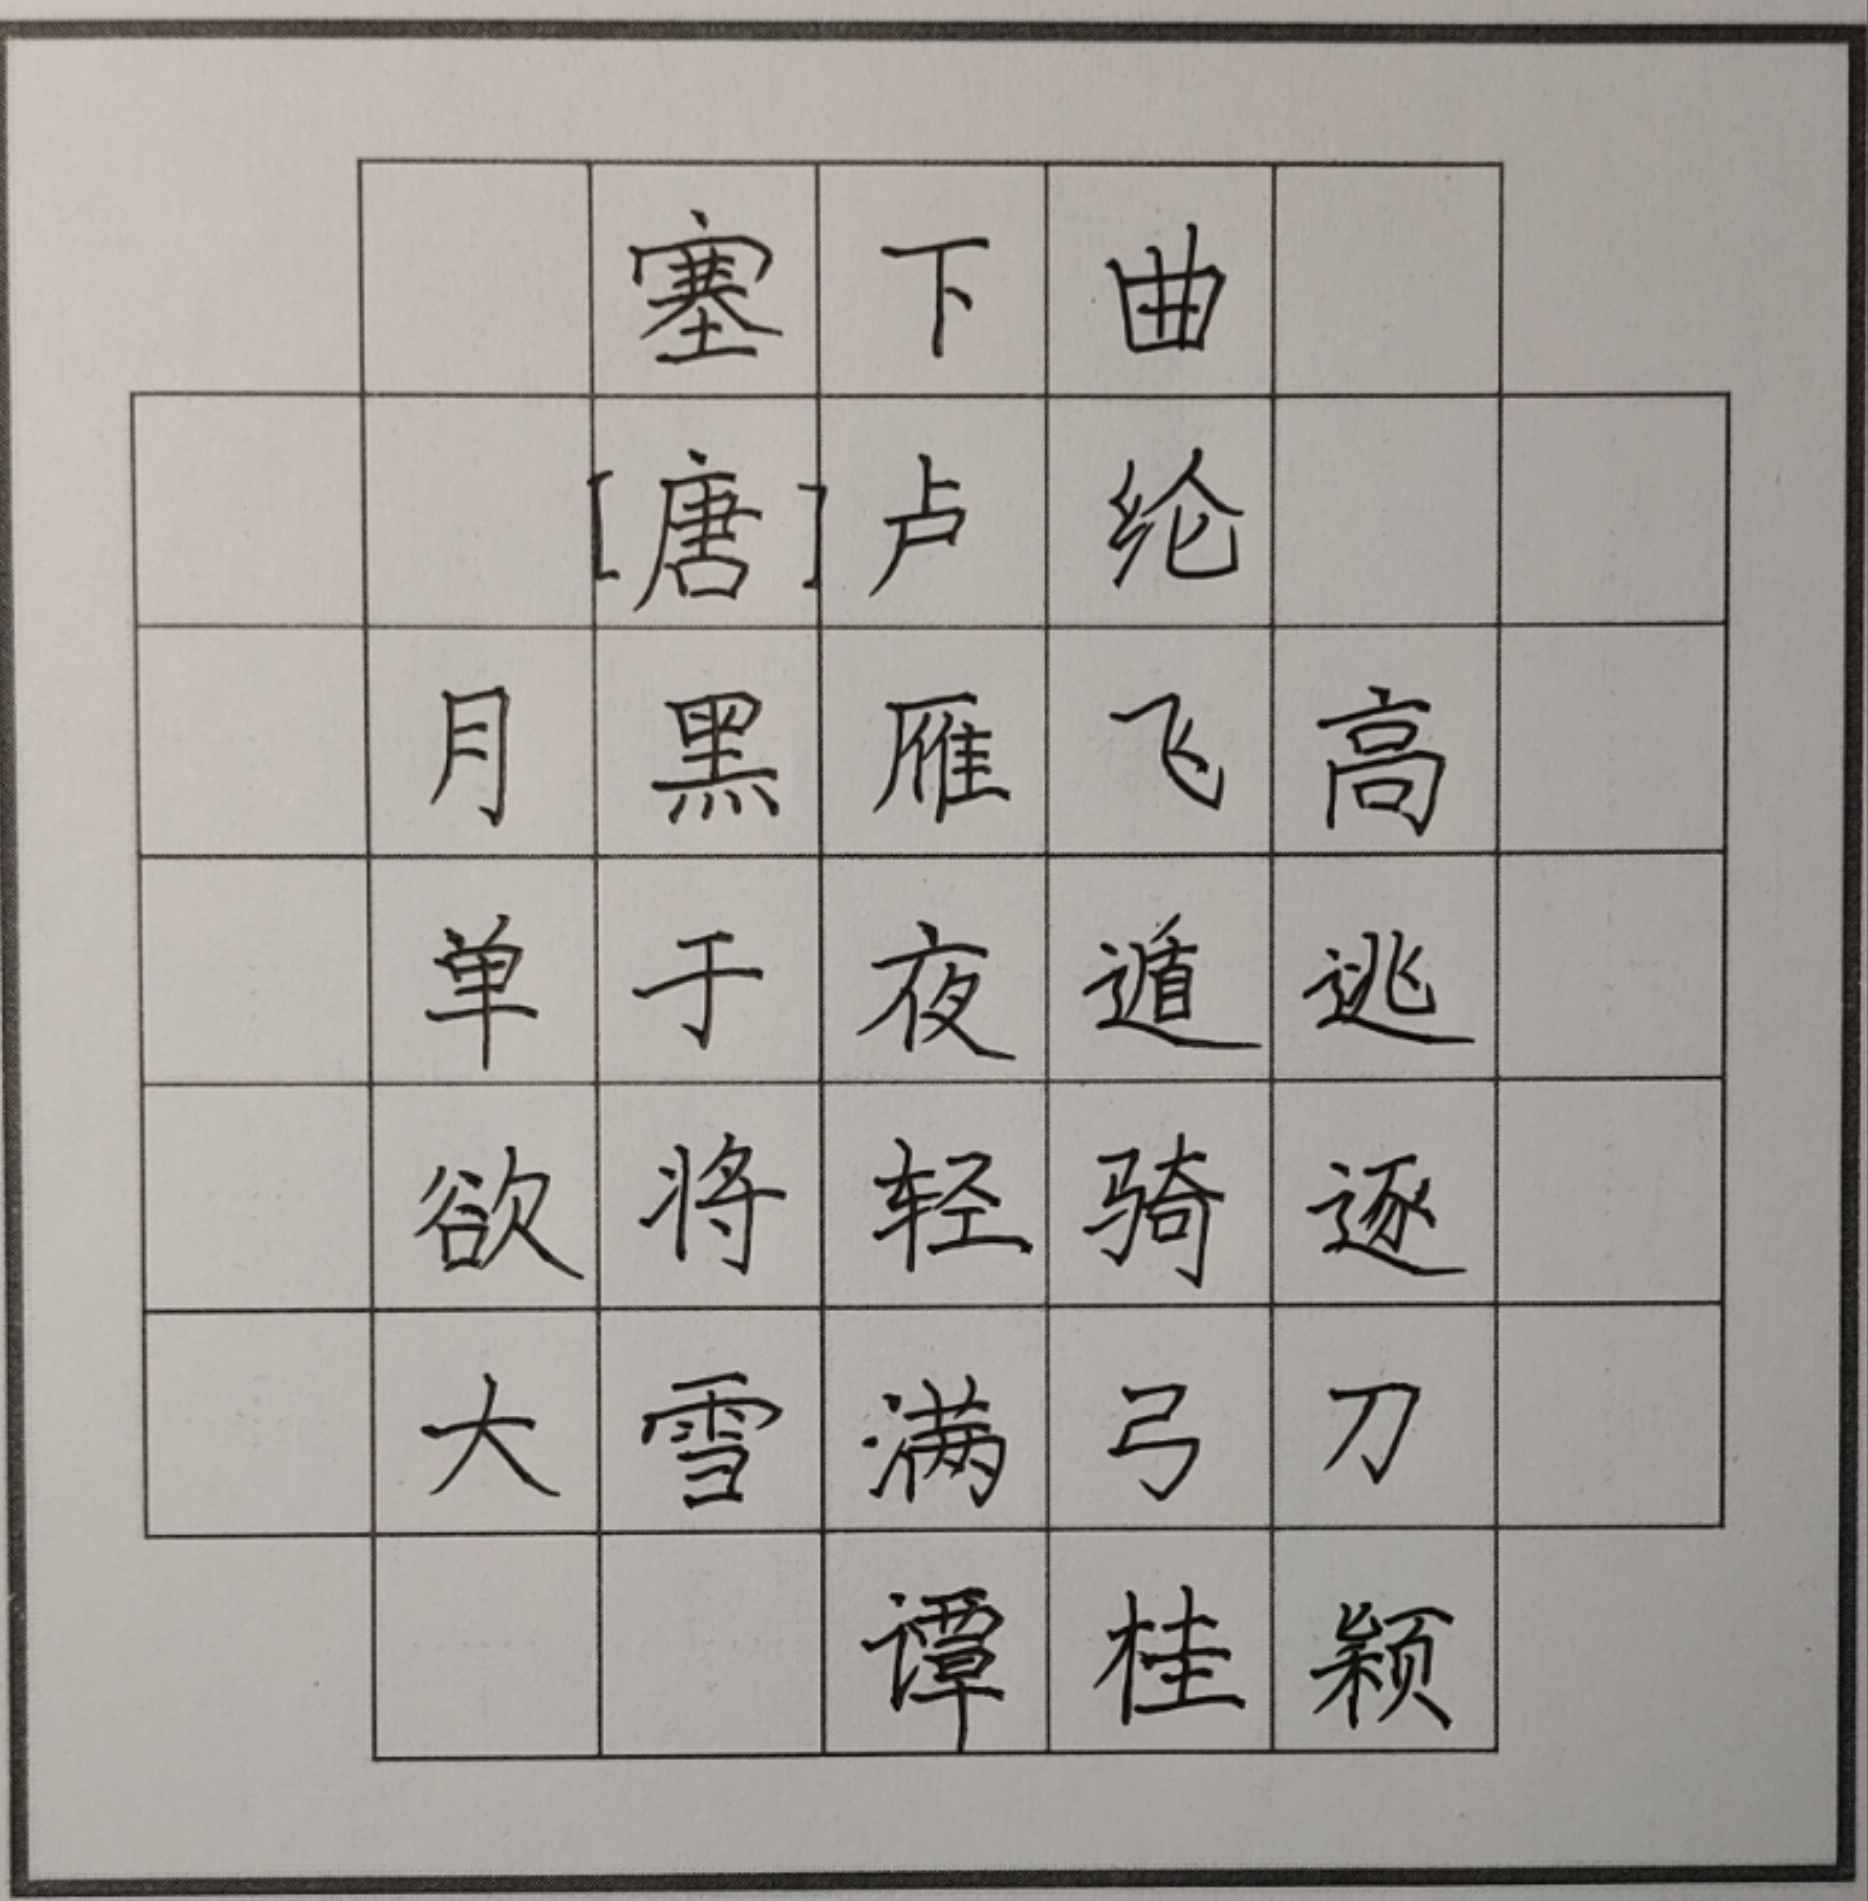 塞下曲
[唐]卢纶
月黑雁飞高
单于夜遁逃
欲将轻骑逐
大雪满弓刀
谭桂颖